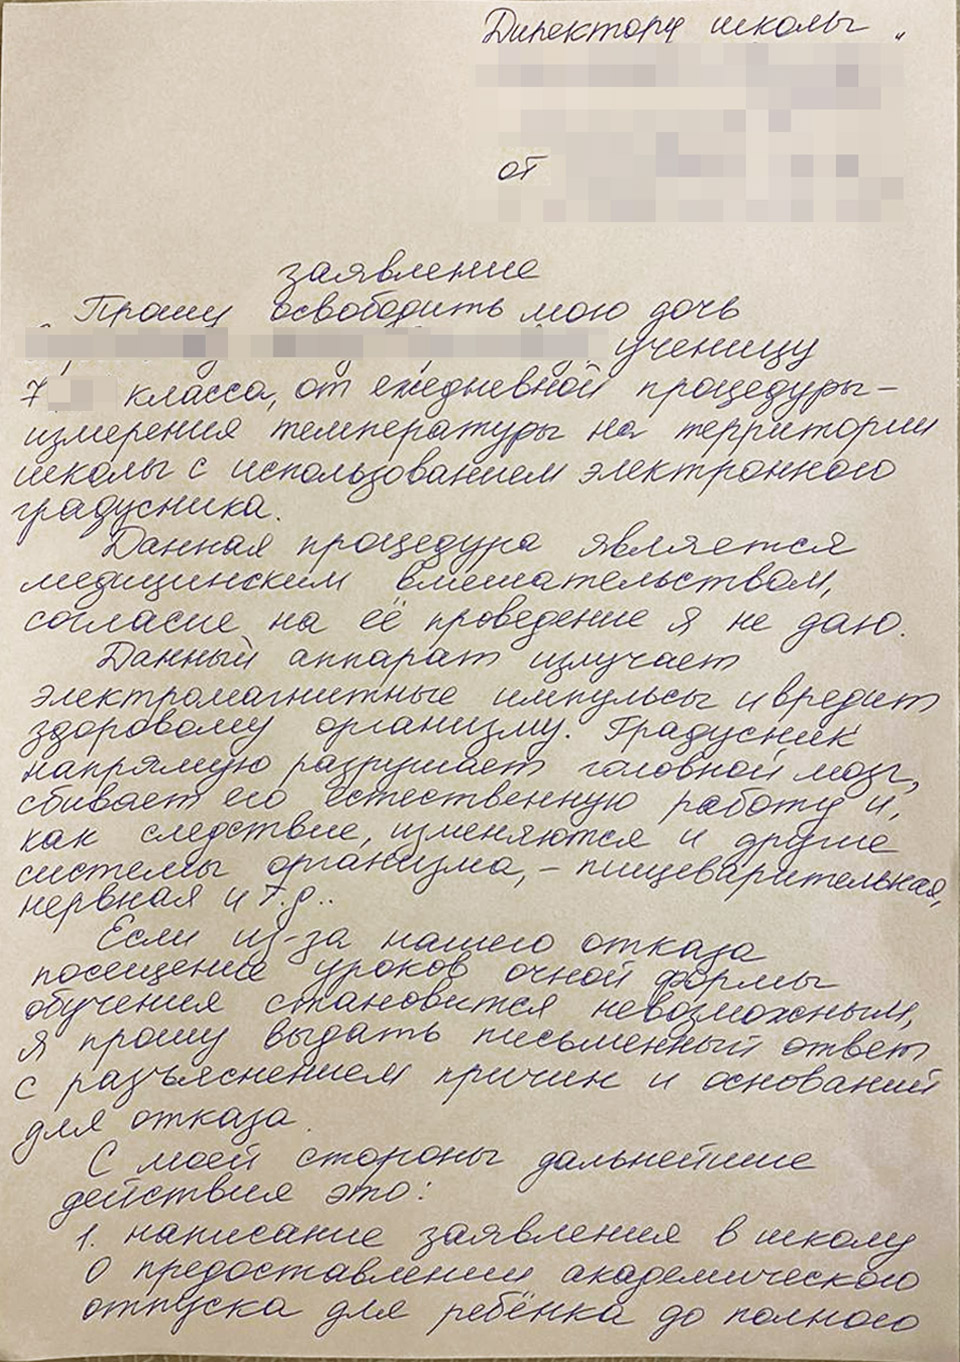 Директору школы "
от
заявление
Прошу освободить мою дочь
ученицу
7 класса, от ежедневной процедуры –
измерения температуры на территории
школы с использованием электронного
градусника.
Данная процедура является
медицинским вмешательством,
согласие на её проведение я не даю.
Данный аппарат излучает
электромагнитные импульсы и вредит
здоровому организму. Градусник
напрямую разрушает головной мозг,
сбивает его естественную работу и,
как следствие, изменяются и другие
системы организма, – пищеварительная,
нервная и т.д..
Если из-за нашего отказа
посещение уроков очной формы
обучения становится невозможным,
я прошу выдать письменный ответ
с разъяснением причин и оснований
для отказа.
С моей стороны дальнейшие
действия это:
1. написание заявления в школу
о предоставлении академического
отпуска для ребёнка до полного